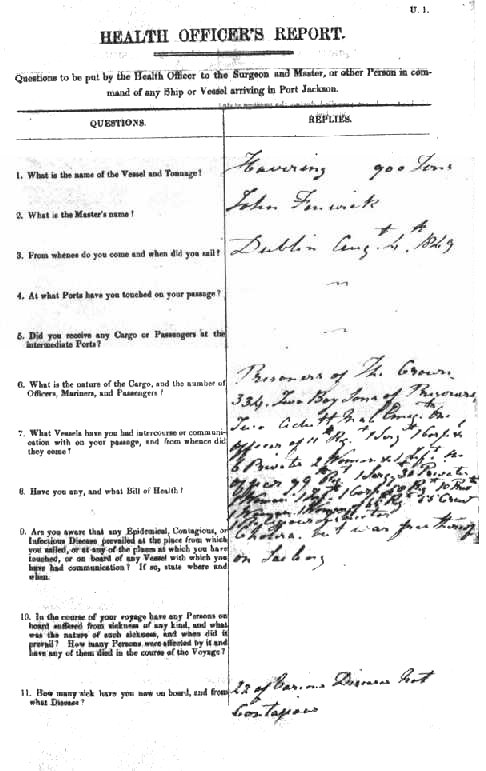 U. 1.
HEALTH OFFICER'S REPORT.
Questions to be put by the Health Officer to the Surgeon and Master, or other Person in com-
mand of any Ship or Vessel arriving in Port Jackson.
QUESTIONS.
REPLIES.
1. What is the name of the Vessel and Tonnage?
Havering 900 Tons
2. What is the Master's name?
John Fenwick
3. From whence do you come and when did you sail?
Dublin Augt 4th 1849
4. At what Ports have you touched on your passage?
5. Did you receive any Cargo or Passengers at the
Intermediate Ports?
6. What is the nature of the Cargo, and the number of
Officers, Mariners, and Passengers?
Prisoners of The Crown
334. Two Boy Sons of Prisoners
7. What Vessels have you had intercourse or communi-
cation with on your passage, and from whence did
they come?
Two
officer of 11th Regt 1 Sergt 1 Corpl
6 Privates 2 Women &
8. Have you any, and what Bill of Health?
officer 99 Regt 1 Sergt 30 Privates
9. Are you aware that any Epidemical, Contagious, or
Infectious Disease prevailed at the place from which
you sailed, or at any of the places at which you have
touched, or on board of any Vessel with which you
have had communication? If so, state where and
when.
Cholera but was free thereof
on Sailing
10. In the course of your voyage have any Persons on
board suffered from sickness of any kind, and what
was the nature of such sickness, and when did it
prevail? How many Persons were affected by it and
have any of them died in the course of the Voyage?
11. How many sick have you now on board, and from
what Disease?
22 of Various Diseases Not
Contagious